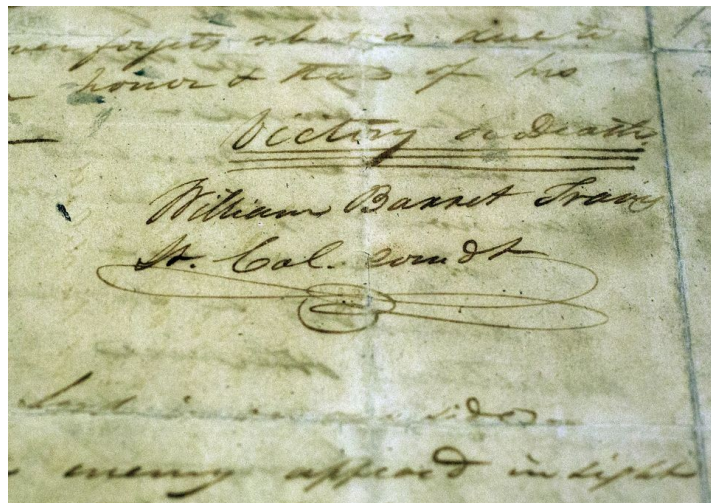 ver forgets what is due to
honor & that of his
Victory or Death
William Barret Travis
Lt. Col. comdt
Lord is on our side
enemy appeard in sight